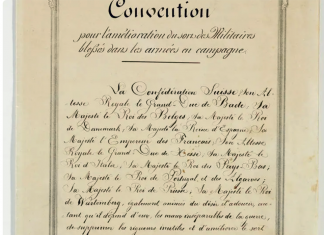 Convention
pour l'amélioration du sort des Militaires
blessés dans les armées en campagne.
La Confédération Suisse, Son Al-
tesse Royale le Grand-Duc de Bade, Sa
Majesté le Roi des Belges, Sa Majesté le Roi
de Danemark, Sa Majesté la Reine d'Espagne, Sa
Majesté l'Empereur des Français, Son Altesse
Royale le Grand-Duc de Hesse, Sa Majesté le
Roi d'Italie, Sa Majesté le Roi des Pays-Bas,
Sa Majesté le Roi de Portugal et des Algarves,
Sa Majesté le Roi de Prusse, Sa Majesté le Roi
de Würtemberg, également animés du désir d'adoucir, au-
tant qu'il dépend d'eux, les maux inséparables de la guerre,
de supprimer les rigueurs inutiles et d'améliorer le sort